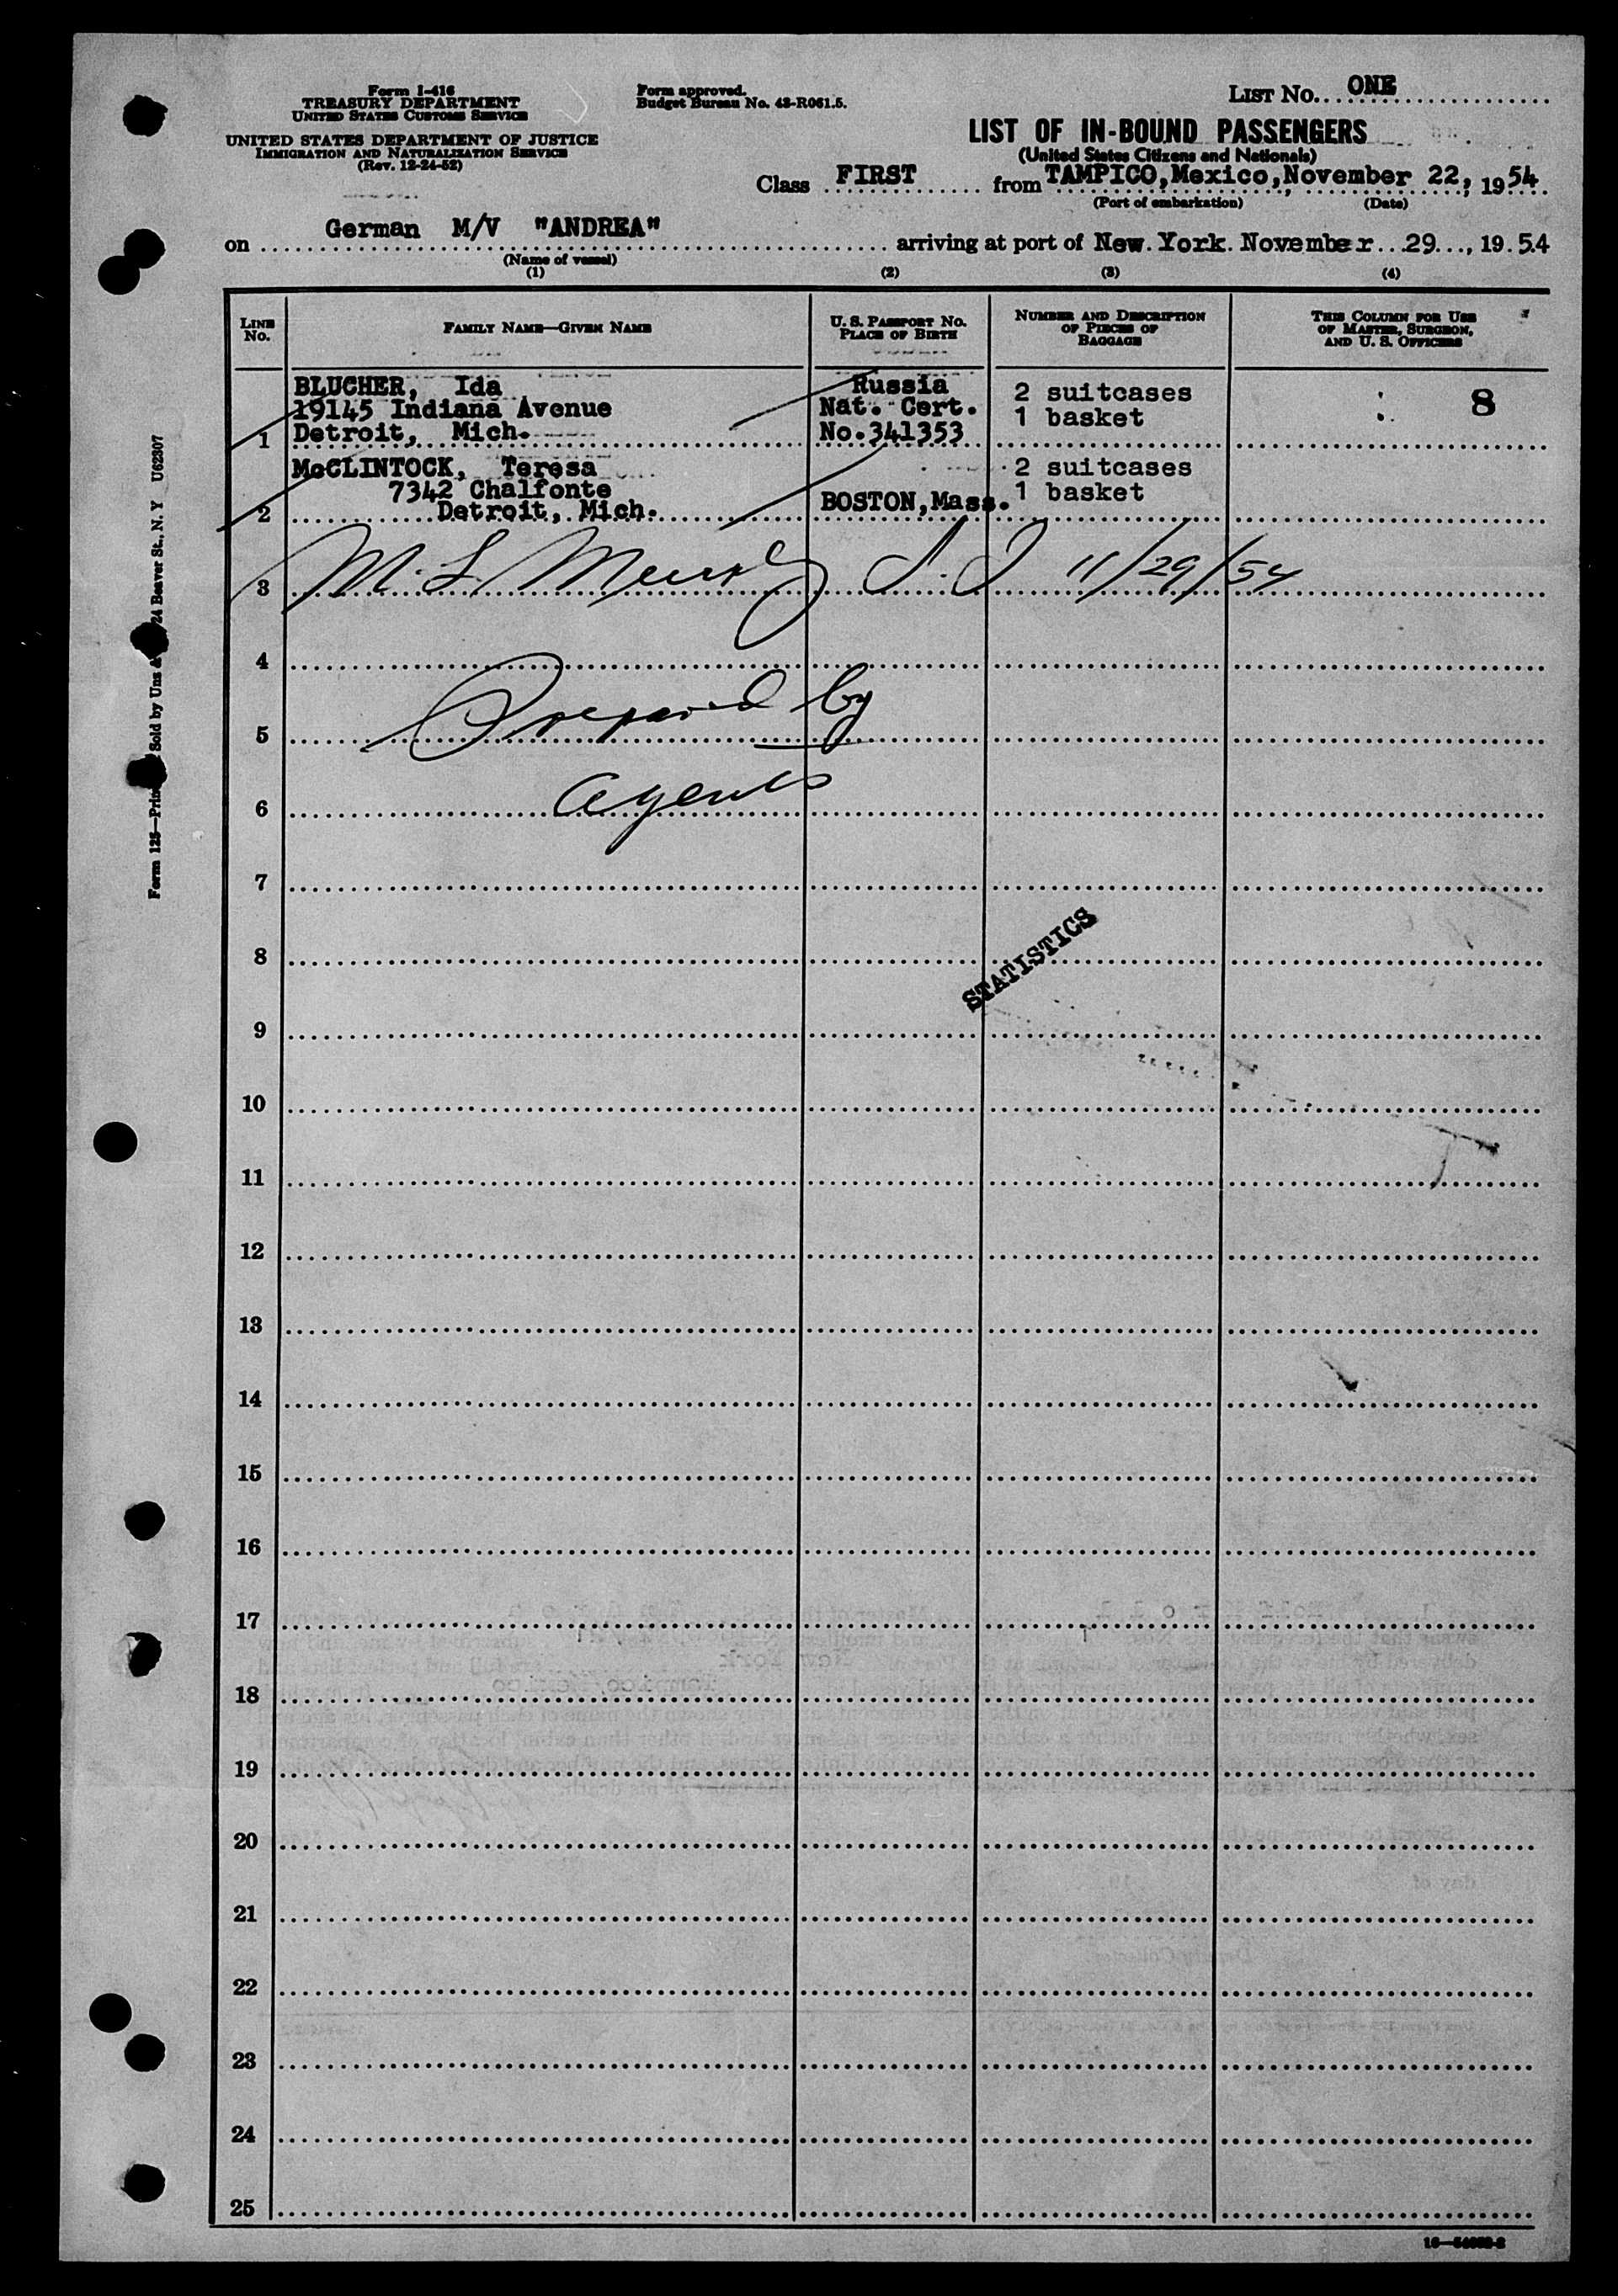 Form I-416
TREASURY DEPARTMENT
UNITED STATES CUSTOMS SERVICE
UNITED STATES DEPARTMENT OF JUSTICE
IMMIGRATION AND NATURALIZATION SERVICE
(Rev. 12-24-52)
Form approved.
Budget Bureau No. 43-R061.5.
LIST No. ONE
LIST OF IN-BOUND PASSENGERS
(United States Citizens and Nationals)
Class FIRST from TAMPICO, Mexico, November 22, 1954
(Port of embarkation) (Date)
on German M/V "ANDREA" arriving at port of New York November 29, 1954
(Name of vessel)
(1) (2) (3) (4)
LINE No. FAMILY NAME—GIVEN NAME U. S. PASSPORT No. PLACE OF BIRTH NUMBER AND DESCRIPTION OF PIECES OF BAGGAGE THIS COLUMN FOR USE OF MASTER, SURGEON, AND U. S. OFFICERS
BLUCHER, Ida Russia 2 suitcases 8
19145 Indiana Avenue Nat. Cert. 1 basket
1 Detroit, Mich. No. 341353
McCLINTOCK, Teresa 2 suitcases
7342 Chalfonte 1 basket
2 Detroit, Mich. BOSTON, Mass.
3 M. L. 11/29/54
4
5 Prepared by
6 Agents
7
8 STATISTICS
9
10
11
12
13
14
15
16
17
18
19
20
21
22
23
24
25
Form 125—Sold by Uns & 24 Beaver St., N. Y U62307